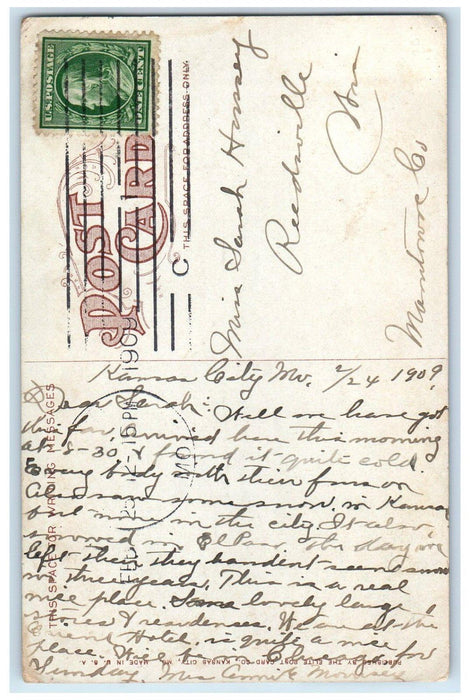 U.S. POSTAGE
ONE CENT
POST CARD
THIS SPACE FOR ADDRESS ONLY.
1909
C
Miss Sarah
Reedsville
Wis
Manitowoc Co
THIS SPACE FOR WRITING MESSAGES
FEB 25 12-15 PM
MO.
Kansas City Mo. 2/24 1909
Dear Sarah: Well we have got
this far, arrived here this morning
at 8-30, & found it quite cold
Every body with their furs on
Also saw some snow in Kansas
but in the city. It also
snowed in El Paso the day we
left there they hadent seen snow
in three years. This is a real
nice place. Some lovely large
stores & residences. We are at the
Hotel, is quite a nice
place. Will be in Chicago for
Sunday. Miss Annie
PUBLISHED BY THE ELITE POST CARD CO., KANSAS CITY, MO. MADE IN U. S. A.